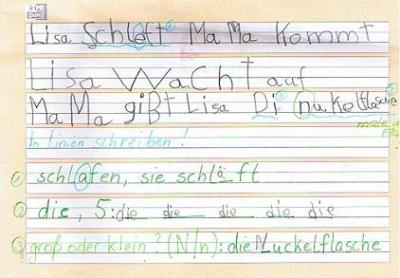 Lisa Schleft MaMa Kommt
Lisa Wacht auf
MaMa gißt Lisa Di nukelflasche
In Linien schreiben!
① schlafen, sie schläft
② die, 5: die die die die die
③ groß oder klein? (N/n): die Nuckelflasche